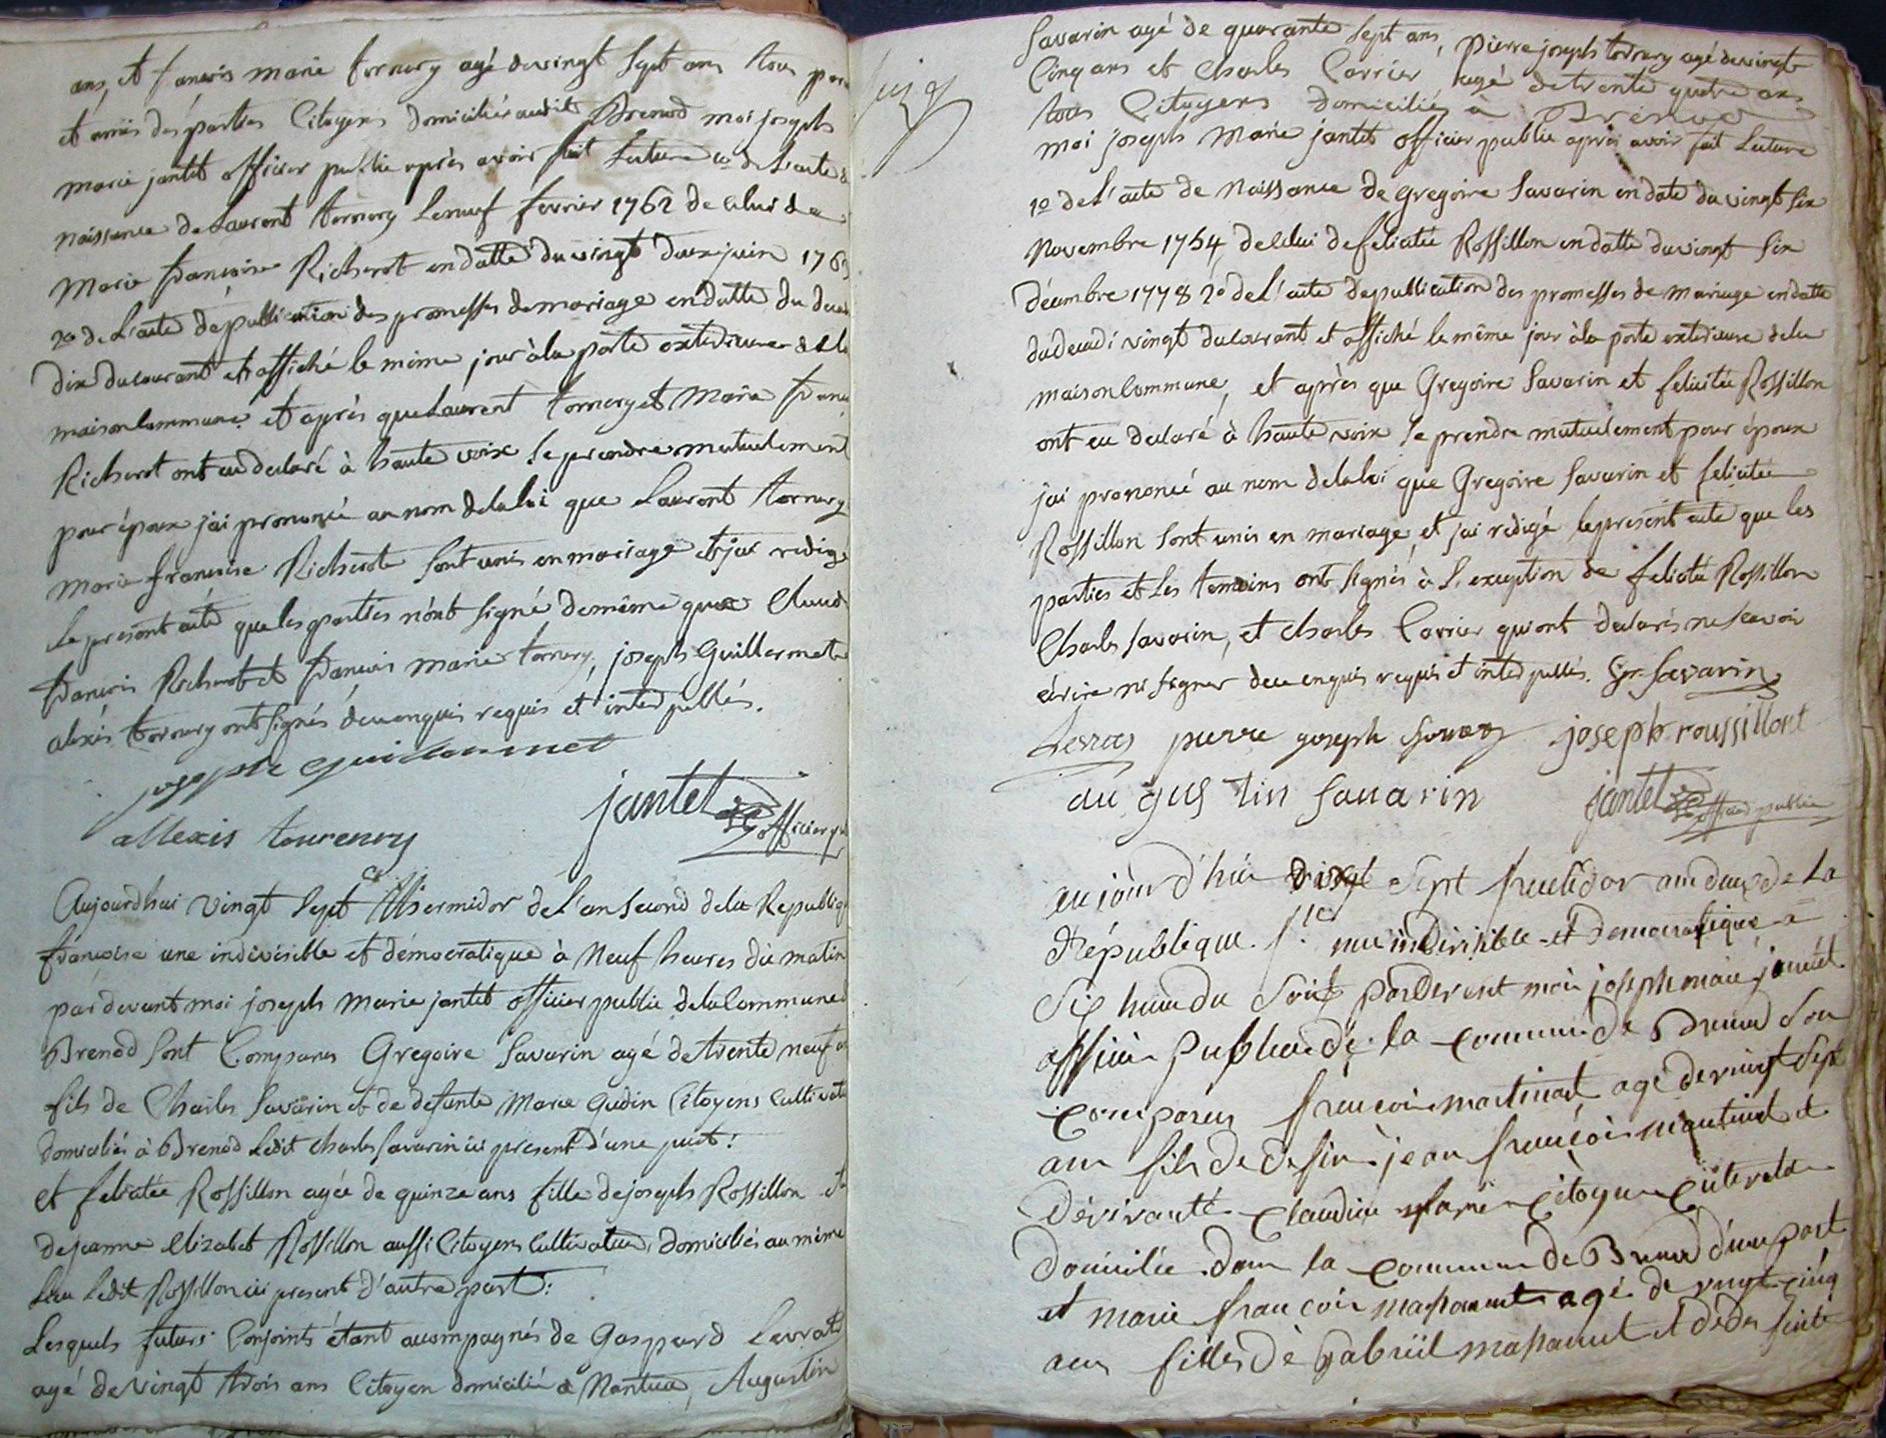 ans, et francois marie tornery agé de vingt sept ans tous
et amis des parties Citoyens domiciliés audit Brenod moi joseph
marie jantet officier public après avoir fait lecture 1o de l'acte
naissance de Laurent tornery le neuf fevrier 1762 de celui de
Marie francoise Richerot en datte du vingt deux juin
2o de l'acte de publication des promesses de mariage en datte du
dix du courant et affiché le même jour à la porte exterieure de la
maison Commune et après que Laurent tornery et Marie
Richerot ont eu declaré à haute voix se prendre mutuelement
pour époux j'ai prononcé au nom de la loi que Laurent tornery
Marie francoise Richerot sont unis en mariage et j'ai redigé
le present acte que les parties n'ont signé de même que
francois Richerot et francois marie tornery, joseph Guillermet
alexis tornery ont signés de ce enquis requis et interpellés.
joseph guillermet
jantet
officier
allexis tourenry
Aujourdhui vingt sept thermidor de l'an second de la Republique
francoise une indivisible et démocratique à neuf heures du matin
par devant moi joseph marie jantet officier public de la Commune
Brenod sont Comparus Gregoire Savarin agé de trente neuf
fils de Charles Savarin et de defunte Marie Gudin Citoyens
domiciliés à Brenod ledit charles Savarin ici present d'une part:
et felicitée Rossillon agée de quinze ans fille de joseph Rossillon et
de jeanne elizabet Rossillon aussi Citoyens Cultivateurs, domiciliés au même
lieu ledit Rossillon ici present d'autre part:
Lesquels futurs Conjoints étant acompagnés de Gaspard Levrat
agé de vingt trois ans Citoyen domicilié à Nantua, Augustin
Savarin agé de quarante sept ans, Pierre joseph tornery agé de vingt
Cinq ans et Charles Carrier agé de trente quatre ans
tous Citoyens domiciliés à Brenod
moi joseph marie jantet officier public après avoir fait lecture
1o de l'acte de naissance de gregoire Savarin en date du vingt six
Novembre 1754, de celui de felicitée Rossillon en datte du vingt six
décembre 1778 2o de l'acte de publication des promesses de mariage en datte
du decadi vingt du courant et affiché le même jour à la porte exterieure de la
maison Commune, et après que Gregoire Savarin et felicitée Rossillon
ont eu declaré à haute voix se prendre mutuelement pour époux
j'ai prononcé au nom de la loi que Gregoire Savarin et felicitée
Rossillon sont unis en mariage, et j'ai redigé le present acte que les
parties et les temoins ont signés à l'exception de felicitée Rossillon
Charles Savarin, et charles Carrier qui ont declarés ne scavoir
écrire ni signer de ce enquis requis et interpellés. Gr Savarin
Levrat pierre joseph joseph roussillont
au gus tin savarin
jantet officier public
aujourd'hui sept fructidor an deux de la
République f.se une indivisible et democratique a
six heure du soir pardevent moi joseph marie jantet
officier Public de la commune de Brenod son
comparus francois martinant agé de vingt sept
ans fils de defun jean francois martinant et
de vivante Claudine citoyen
domicilié dans la commune de Brenod d'une part
et marie francoise agé de vingt cinq
ans filles de gabriel et de